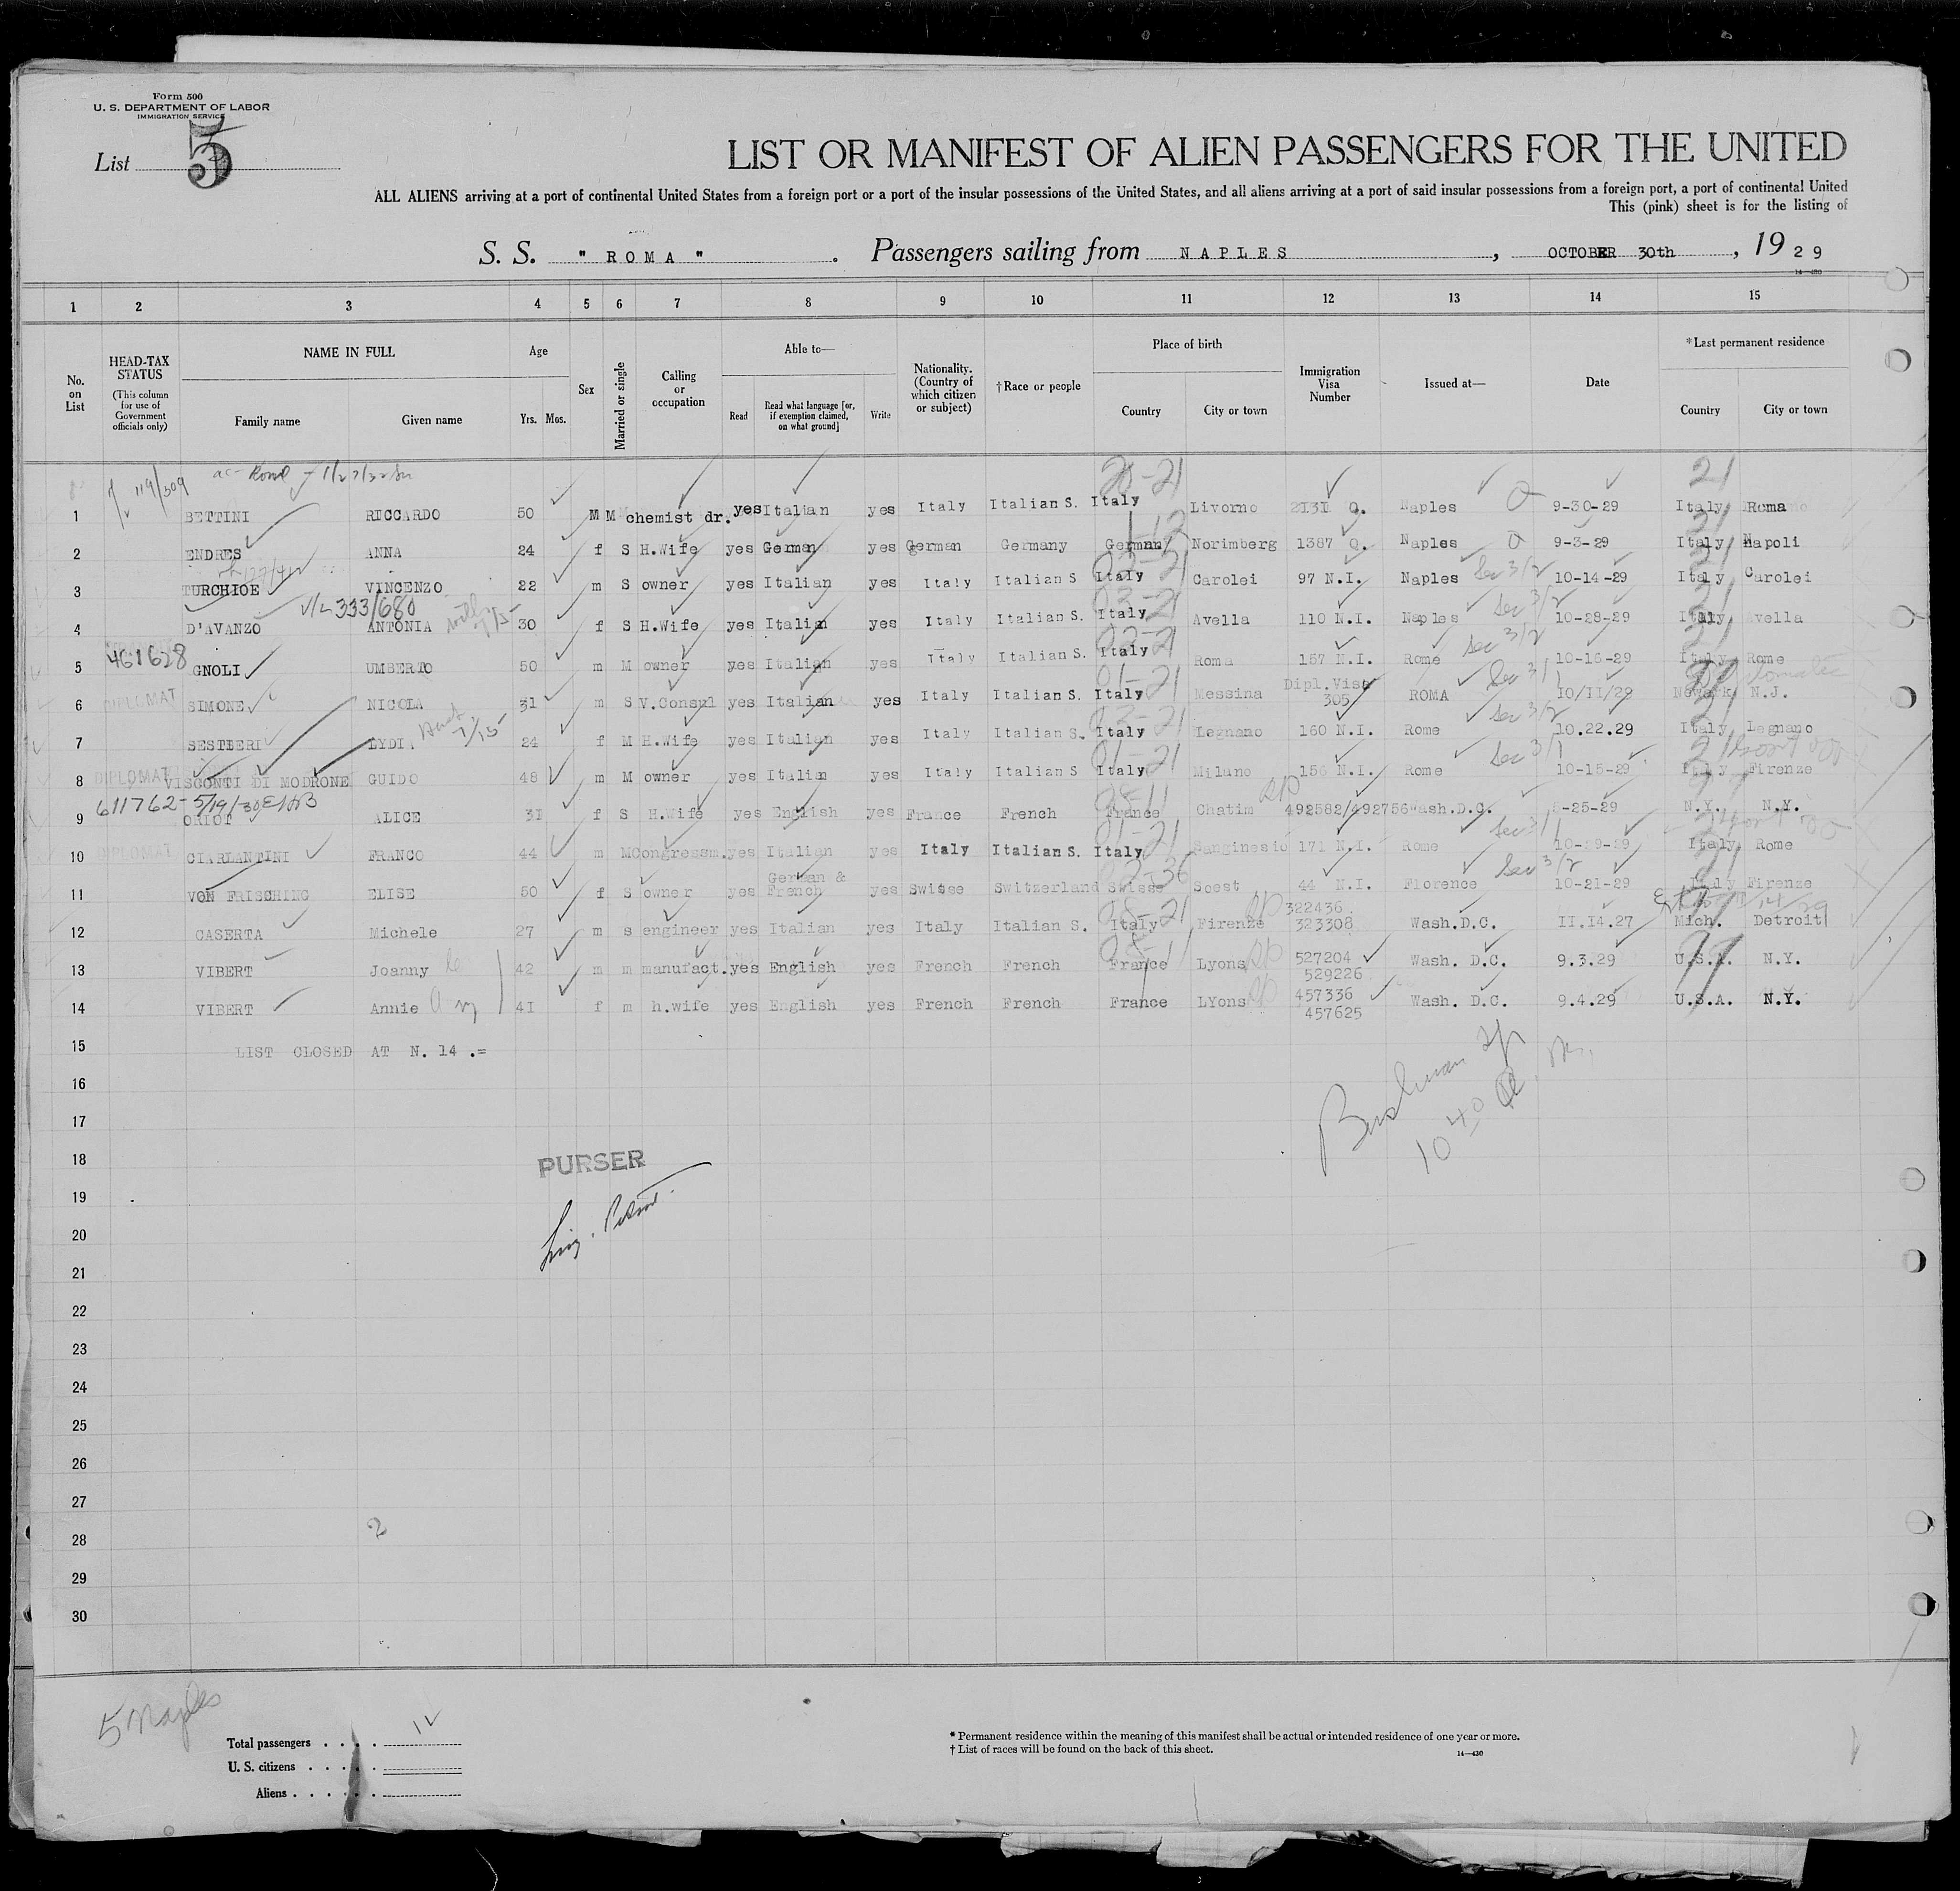 Form 500
U. S. DEPARTMENT OF LABOR
IMMIGRATION SERVICE
List 5
LIST OR MANIFEST OF ALIEN PASSENGERS FOR THE UNITED
ALL ALIENS arriving at a port of continental United States from a foreign port or a port of the insular possessions of the United States, and all aliens arriving at a port of said insular possessions from a foreign port, a port of continental United
This (pink) sheet is for the listing of
S. S. " ROMA " . Passengers sailing from NAPLES , OCTOBER 30th , 1929
14—430
1 2 3 4 5 6 7 8 9 10 11 12 13 14 15
No. on List
HEAD-TAX STATUS
(This column for use of Government officials only)
NAME IN FULL
Family name Given name
Age
Yrs. Mos.
Sex
Married or single
Calling or occupation
Able to—
Read Read what language [or, if exemption claimed, on what ground] Write
Nationality. (Country of which citizen or subject)
†Race or people
Place of birth
Country City or town
Immigration Visa Number
Issued at—
Date
*Last permanent residence
Country City or town
119/309 20-21 21
1 BETTINI RICCARDO 50 M M chemist dr. yes Italian yes Italy Italian S. Italy Livorno 2131 Q. Naples 9-30-29 Italy Roma
2 ENDRES ANNA 24 f S H.Wife yes German yes German Germany German Norimberg 1387 Q. Naples 9-3-29 Italy Napoli
3 TURCHIOE VINCENZO 22 m S owner yes Italian yes Italy Italian S Italy Carolei 97 N.I. Naples Sec 3/2 10-14-29 Italy Carolei
V/L 333/680
4 D'AVANZO ANTONIA 30 f S H.Wife yes Italian yes Italy Italian S. Italy Avella 110 N.I. Naples Sec 3/2 10-28-29 Italy Avella
461628
5 GNOLI UMBERTO 50 m M owner yes Italian yes Italy Italian S. Italy Roma 157 N.I. Rome Sec 3/2 10-16-29 Italy Rome
6 DIPLOMAT SIMONE NICOLA 31 m S V.Consul yes Italian yes Italy Italian S. Italy Messina Dipl.Visa 305 ROMA Sec 3/1 10/11/29 Newark N.J.
7 SESTIERI LYDIA 24 f M H.Wife yes Italian yes Italy Italian S. Italy Legnano 160 N.I. Rome Sec 3/2 10.22.29 Italy Legnano
8 DIPLOMAT VISCONTI DI MODRONE GUIDO 48 m M owner yes Italian yes Italy Italian S Italy Milano 156 N.I. Rome Sec 3/1 10-15-29 Italy Firenze
611762-5/19/30
9 ORIOT ALICE 31 f S H.Wife yes English yes France French France Chatim 492582/492756 Wash.D.C. -25-29 N.Y. N.Y.
10 DIPLOMAT CIARLANTINI FRANCO 44 m M Congressm. yes Italian yes Italy Italian S. Italy Sanginesio 171 N.I. Rome Sec 3/1 10-29-29 Italy Rome
11 VON FRISCHING ELISE 50 f S owner yes German & French yes Switsee Switzerland Swisse Soest 44 N.I. Florence Sec 3/2 10-21-29 Italy Firenze
12 CASERTA Michele 27 m s engineer yes Italian yes Italy Italian S. Italy Firenze 322436 323308 Wash.D.C. 11.14.27 Mich. Detroit
13 VIBERT Joanny 42 m m manufact. yes English yes French French France Lyons 527204 529226 Wash. D.C. 9.3.29 U.S.A. N.Y.
14 VIBERT Annie 41 f m h.wife yes English yes French French France LYons 457336 457625 Wash. D.C. 9.4.29 U.S.A. N.Y.
15 LIST CLOSED AT N. 14 .=
16
17
18 PURSER
19
20
21
22
23
24
25
26
27
28
29
30
5 Naples
Total passengers . . . .
U. S. citizens . . . . .
Aliens . . . . . .
* Permanent residence within the meaning of this manifest shall be actual or intended residence of one year or more.
† List of races will be found on the back of this sheet.
14—430